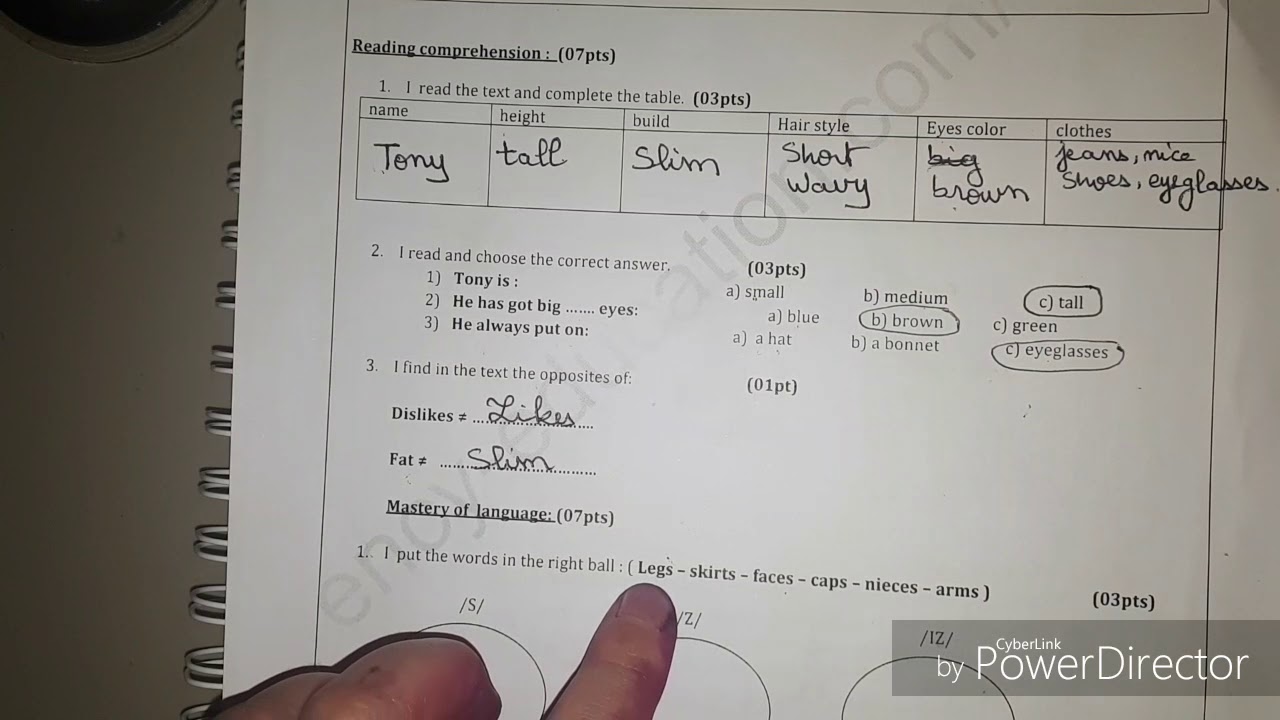 Reading comprehension : (07pts)
1. I read the text and complete the table. (03pts)
name height build Hair style Eyes color clothes
Tony tall Slim Short big jeans, nice
Wavy brown shoes, eyeglasses.
2. I read and choose the correct answer. (03pts)
1) Tony is : a) small b) medium c) tall
2) He has got big ....... eyes: a) blue b) brown c) green
3) He always put on: a) a hat b) a bonnet c) eyeglasses
3. I find in the text the opposites of: (01pt)
Dislikes ≠ ... Likes ...
Fat ≠ ... Slim ...
Mastery of language: (07pts)
1. I put the words in the right ball : ( Legs – skirts – faces – caps – nieces – arms ) (03pts)
/S/ /Z/ /IZ/
CyberLink
by PowerDirector